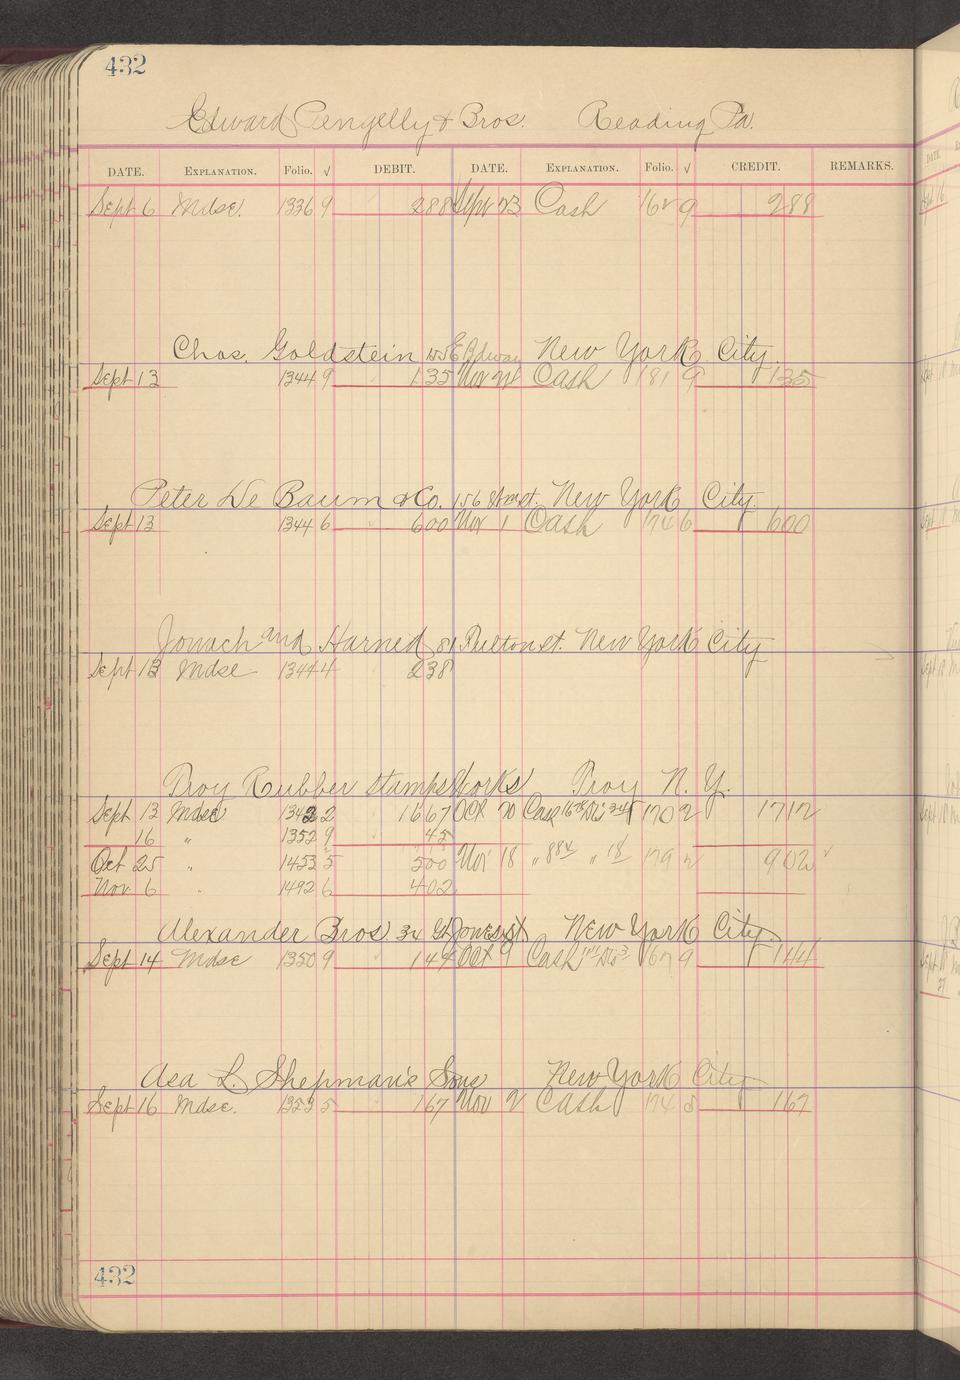 432
Edward Pengelly & Bros. Reading Pa.
DATE. EXPLANATION. Folio. √ DEBIT. DATE. EXPLANATION. Folio. √ CREDIT. REMARKS.
Sept 6 Mdse. 1336 9 288 Sept 23 Cash 162 9 288
Chas. Goldstein New York City
Sept 13 1344 9 135 Nov Cash 181 9 135
Peter De Baum & Co. 156 New York City
Sept 13 1344 6 600 Nov 1 Cash 174 6 600
Jonach and Harned 81 Fulton st. New York City
Sept 13 Mdse 1344 4 238
Troy Rubber Stamp Works Troy N. Y.
Sept 13 Mdse 1342 2 1667 Oct 20 Cash 170 2 1712
16 " 1352 9 45
Oct 25 " 1453 5 500 Nov 18 " " 18 179 2 902 √
Nov 6 " 1492 6 402
Alexander Bros. 34 Gt Jones st New York City
Sept 14 Mdse 1350 9 144 Oct 9 Cash 167 9 144
Asa L. Shipman's Sons New York City
Sept 16 Mdse. 135 5 167 Nov 2 Cash 174 5 167
432